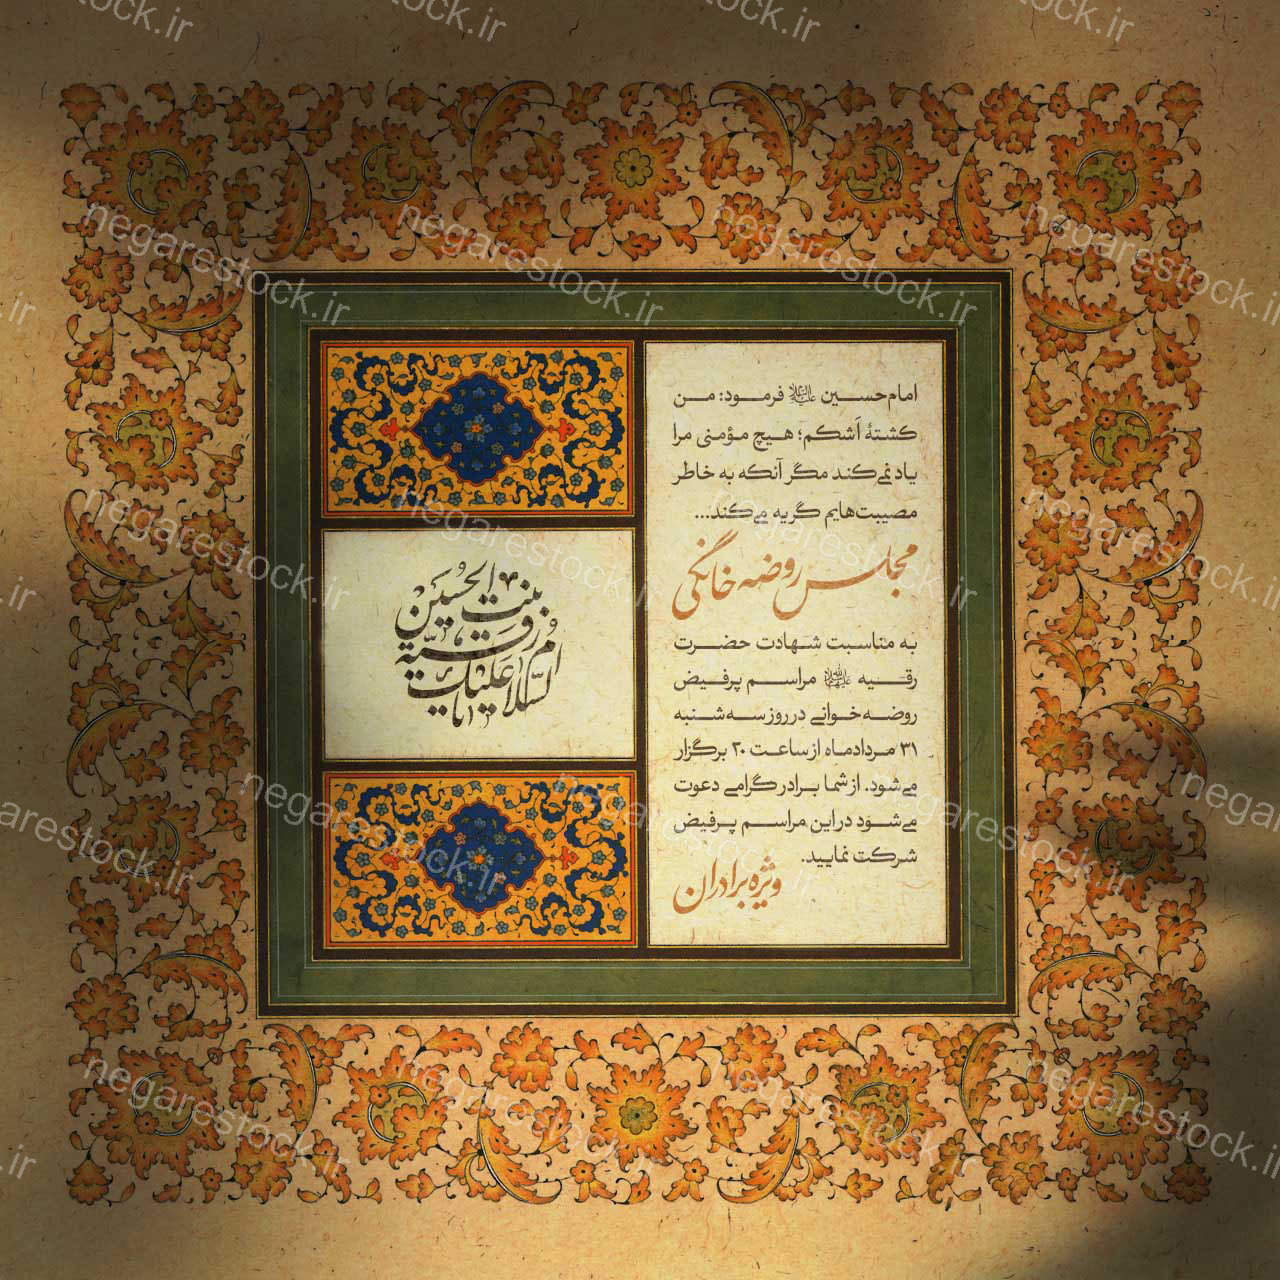 امام حسین علیه‌السلام فرمود: من
کشتهٔ اَشکم؛ هیچ مؤمنی مرا
یاد نمی‌کند مگر آنکه به خاطر
مصیبت‌هایم گریه می‌کند...
مجلس روضه خانگی
به مناسبت شهادت حضرت
رقیه علیهاالسلام مراسم پرفیض
روضه‌خوانی در روز سه‌شنبه
۳۱ مردادماه از ساعت ۲۰ برگزار
می‌شود. از شما برادر گرامی دعوت
می‌شود در این مراسم پرفیض
شرکت نمایید.
ویژه برادران
السلام علیک یا رقیة بنت الحسین
negarestock.ir